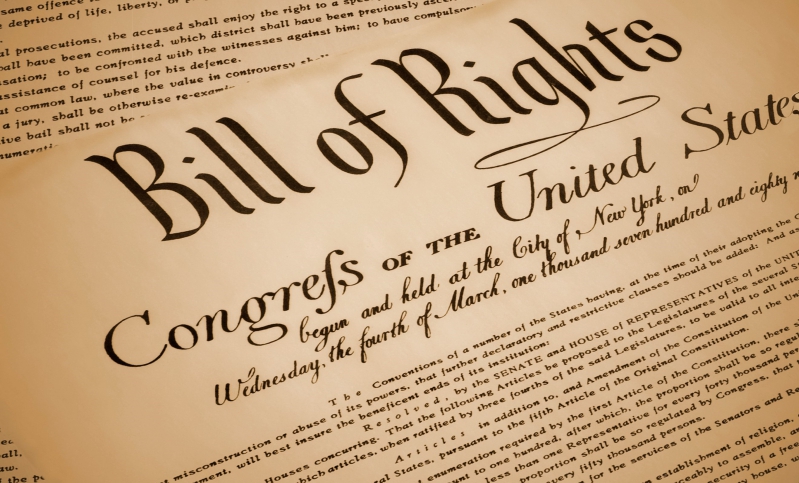 same offence
be deprived of life, liberty, or
al prosecutions, the accused shall enjoy the right to a
hall have been committed, which district shall have been previously
sation; to be confronted with the witnesses against him; to have compulsory
ssistance of counsel for his defence.
at common law, where the value in controversy
a jury, shall be otherwise
ive bail shall not be
Bill of Rights
Congreſs OF THE United States
begun and held at the City of New York, on
Wednesday, the fourth of March, one thousand seven hundred and eighty
The Conventions of a number of the States having, at the time of their adopting the
misconstruction or abuse of its powers, that further declaratory and restrictive clauses should be added: And
ment, will best insure the beneficent ends of its institution:
Resolved, by the SENATE and HOUSE of REPRESENTATIVES of the
Houses concurring. That the following Articles be proposed to the Legislatures of the several
which articles, when ratified by three fourths of the said Legislatures, to be valid to all
Articles in addition to, and Amendment of the Constitution of the
ral States, pursuant to the fifth Article of the Original Constitution.
enumeration required by the first Article of the Constitution, there
unt to one hundred, after which, the proportion shall be so
less than one Representative for every forty thousand
proportion shall be so regulated by Congress, that
every fifty thousand persons.
for the services of the Senators and
establishment of religion,
to assemble, and
security of a free
house,